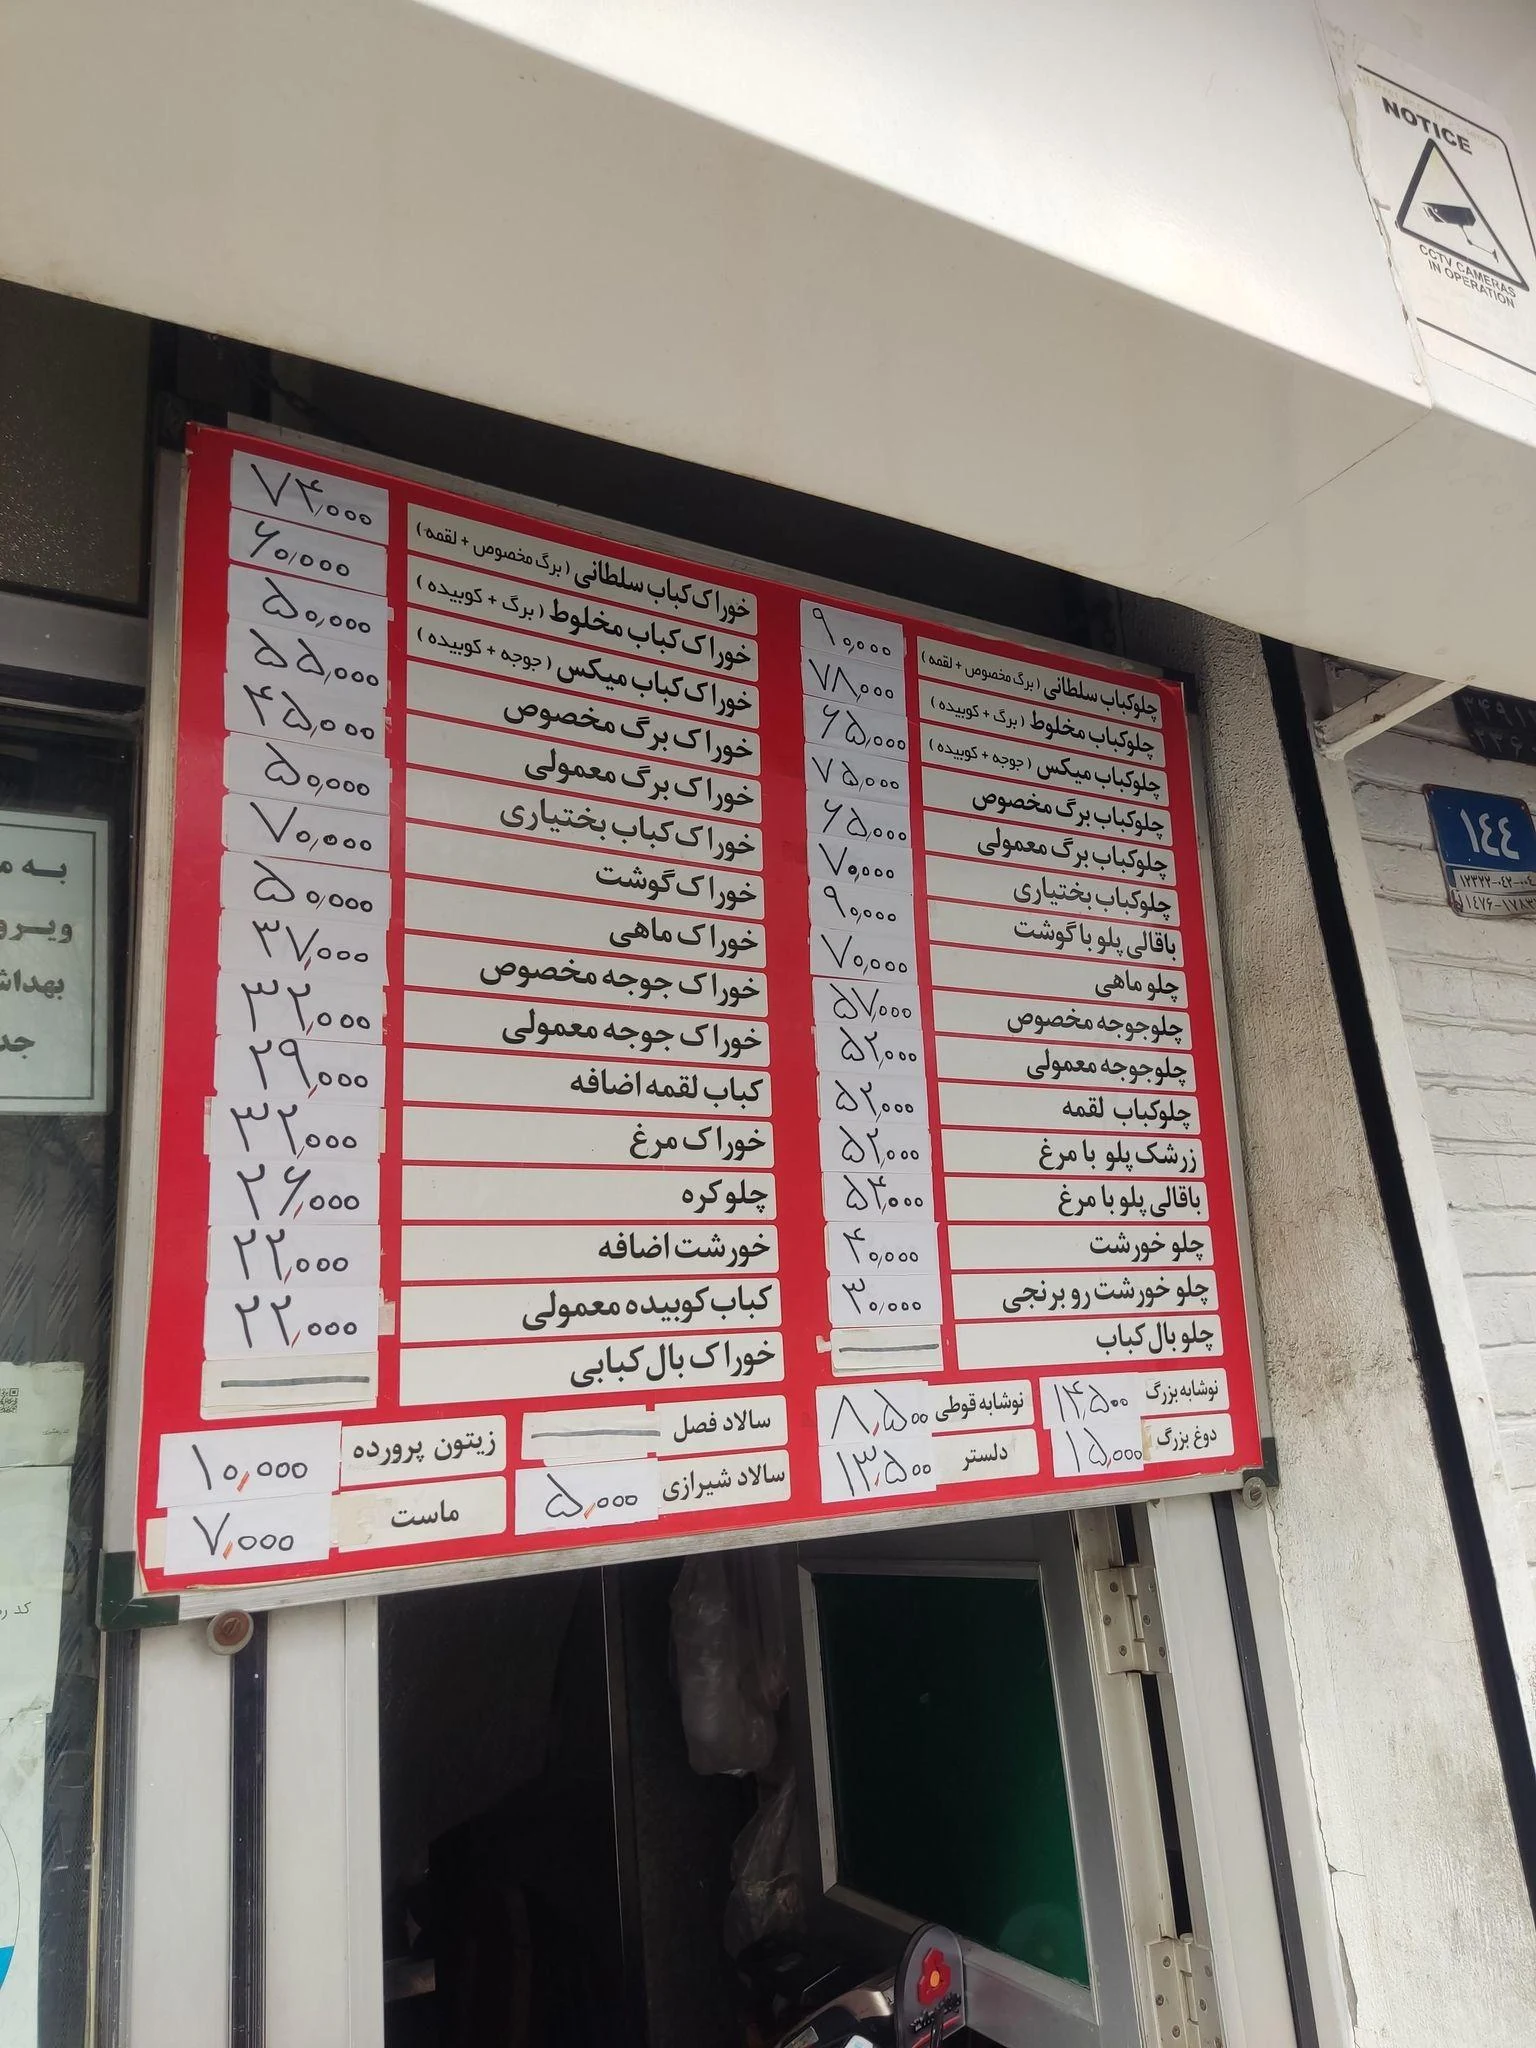 NOTICE
CCTV CAMERAS
IN OPERATION
چلوکباب سلطانی ( برگ مخصوص + لقمه ) ۹۰,۰۰۰
چلوکباب مخلوط ( برگ + کوبیده ) ۷۸,۰۰۰
چلوکباب میکس ( جوجه + کوبیده ) ۶۵,۰۰۰
چلوکباب برگ مخصوص ۷۵,۰۰۰
چلوکباب برگ معمولی ۶۵,۰۰۰
چلوکباب بختیاری ۷۰,۰۰۰
باقالی پلو با گوشت ۹۰,۰۰۰
چلو ماهی ۷۰,۰۰۰
چلوجوجه مخصوص ۵۷,۰۰۰
چلوجوجه معمولی ۵۲,۰۰۰
چلوکباب لقمه ۵۲,۰۰۰
زرشک پلو با مرغ ۵۲,۰۰۰
باقالی پلو با مرغ ۵۴,۰۰۰
چلو خورشت ۴۰,۰۰۰
چلو خورشت رو برنجی ۳۰,۰۰۰
چلو بال کباب
نوشابه بزرگ ۱۴,۵۰۰
نوشابه قوطی ۸,۵۰۰
دوغ بزرگ ۱۵,۰۰۰
دلستر ۱۳,۵۰۰
خوراک کباب سلطانی ( برگ مخصوص + لقمه ) ۷۴,۰۰۰
خوراک کباب مخلوط ( برگ + کوبیده ) ۶۰,۰۰۰
خوراک کباب میکس ( جوجه + کوبیده ) ۵۰,۰۰۰
خوراک برگ مخصوص ۵۵,۰۰۰
خوراک برگ معمولی ۴۵,۰۰۰
خوراک کباب بختیاری ۵۰,۰۰۰
خوراک گوشت ۷۰,۰۰۰
خوراک ماهی ۵۰,۰۰۰
خوراک جوجه مخصوص ۳۷,۰۰۰
خوراک جوجه معمولی ۳۲,۰۰۰
کباب لقمه اضافه ۲۹,۰۰۰
خوراک مرغ ۳۲,۰۰۰
چلو کره ۲۶,۰۰۰
خورشت اضافه ۲۲,۰۰۰
کباب کوبیده معمولی ۲۲,۰۰۰
خوراک بال کبابی
سالاد فصل
زیتون پرورده ۱۰,۰۰۰
سالاد شیرازی ۵,۰۰۰
ماست ۷,۰۰۰
۱٤٤
به